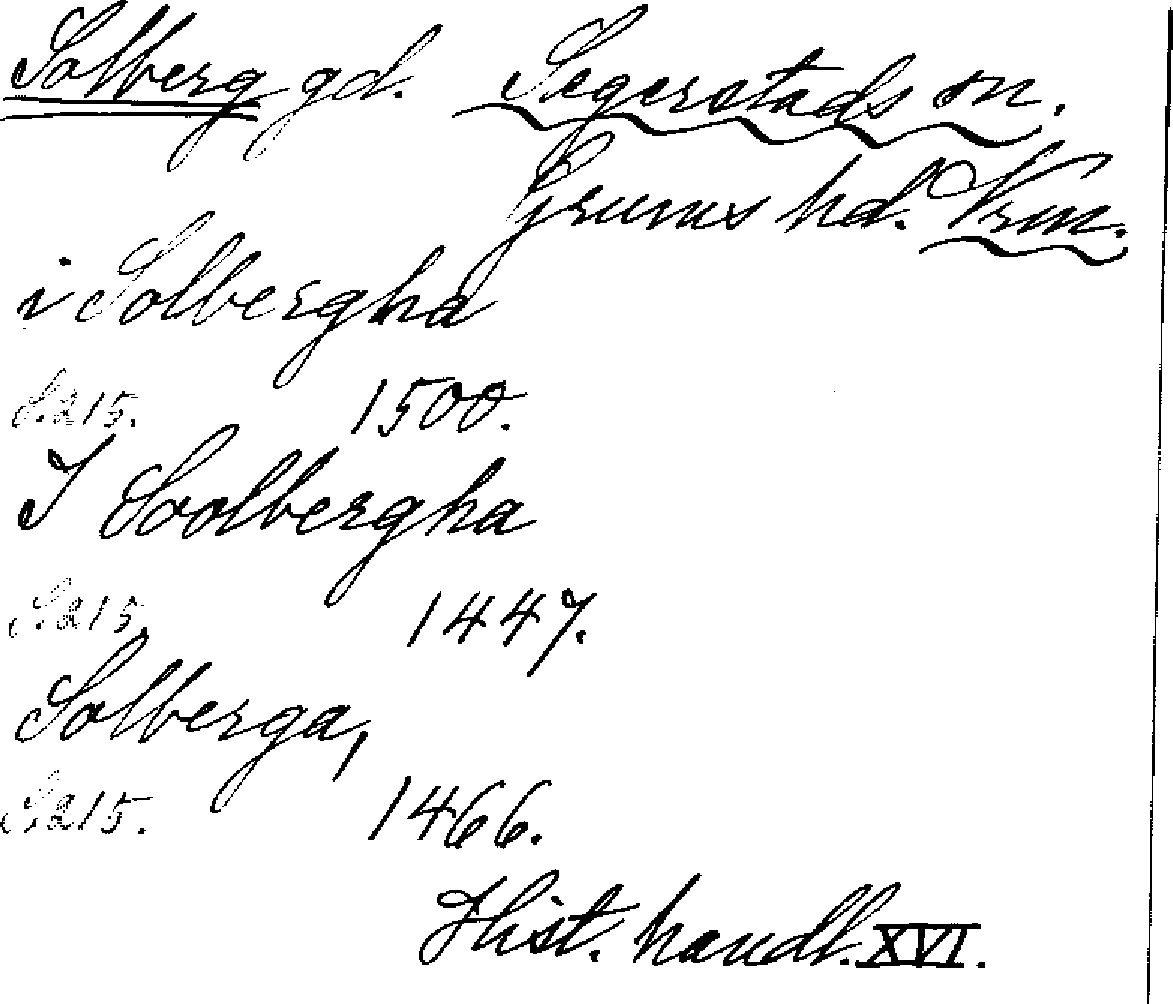 Solberg gd. Segerstads sn.
Grums hd. Vrm.
i Solbergha
S. 215. 1500.
I Soolbergha
S. 215. 1447.
Solberga,
S. 215. 1466.
Hist. handl. XVI.